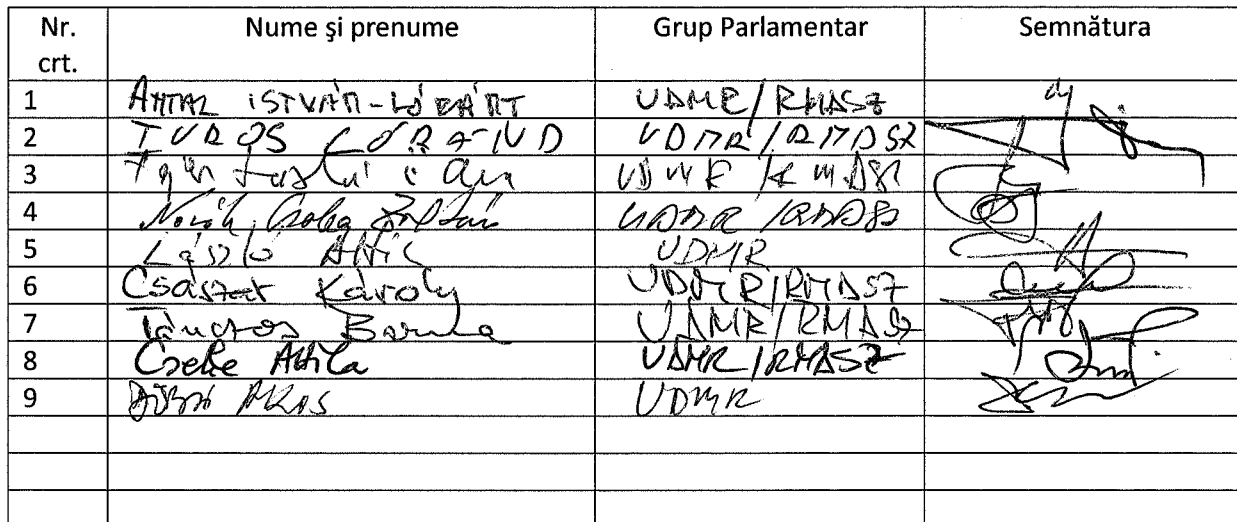 Nr. crt. Nume şi prenume Grup Parlamentar Semnătura
1 ANTAL ISTVÁN-LÓRÁNT UDMR/RMDSZ
2 TUROS LÓRÁND UDMR/RMDSZ
3 UDMR/RMDSZ
4 Novák Csaba Zoltán UDMR/RMDSZ
5 László Attila UDMR
6 Császár Károly UDMR/RMDSZ
7 Tánczos Barna UDMR/RMDSZ
8 Cseke Attila UDMR/RMDSZ
9 UDMR